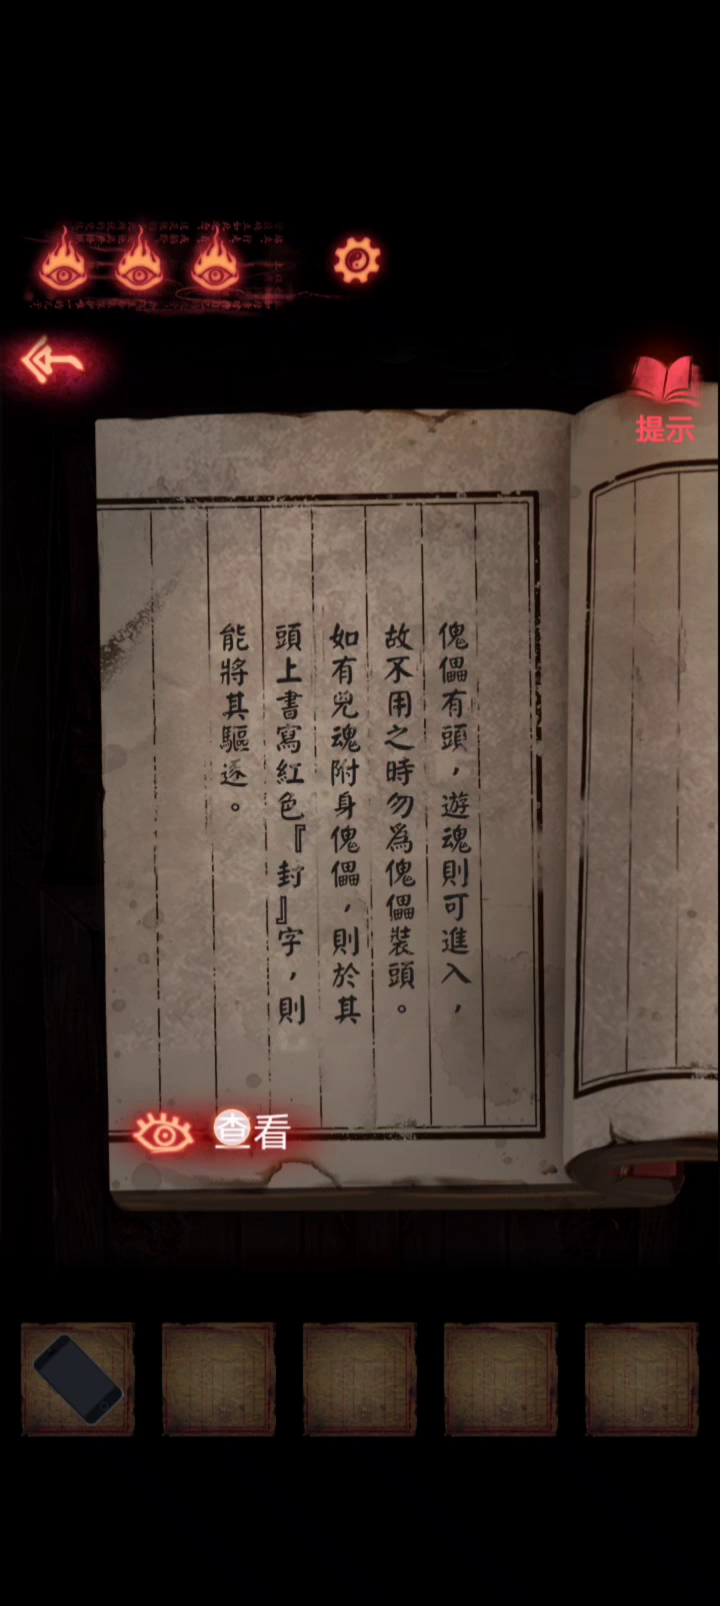 提示
傀儡有頭，遊魂則可進入，
故不用之時勿爲傀儡裝頭。
如有兇魂附身傀儡，則於其
頭上書寫紅色『封』字，則
能將其驅逐。
查看